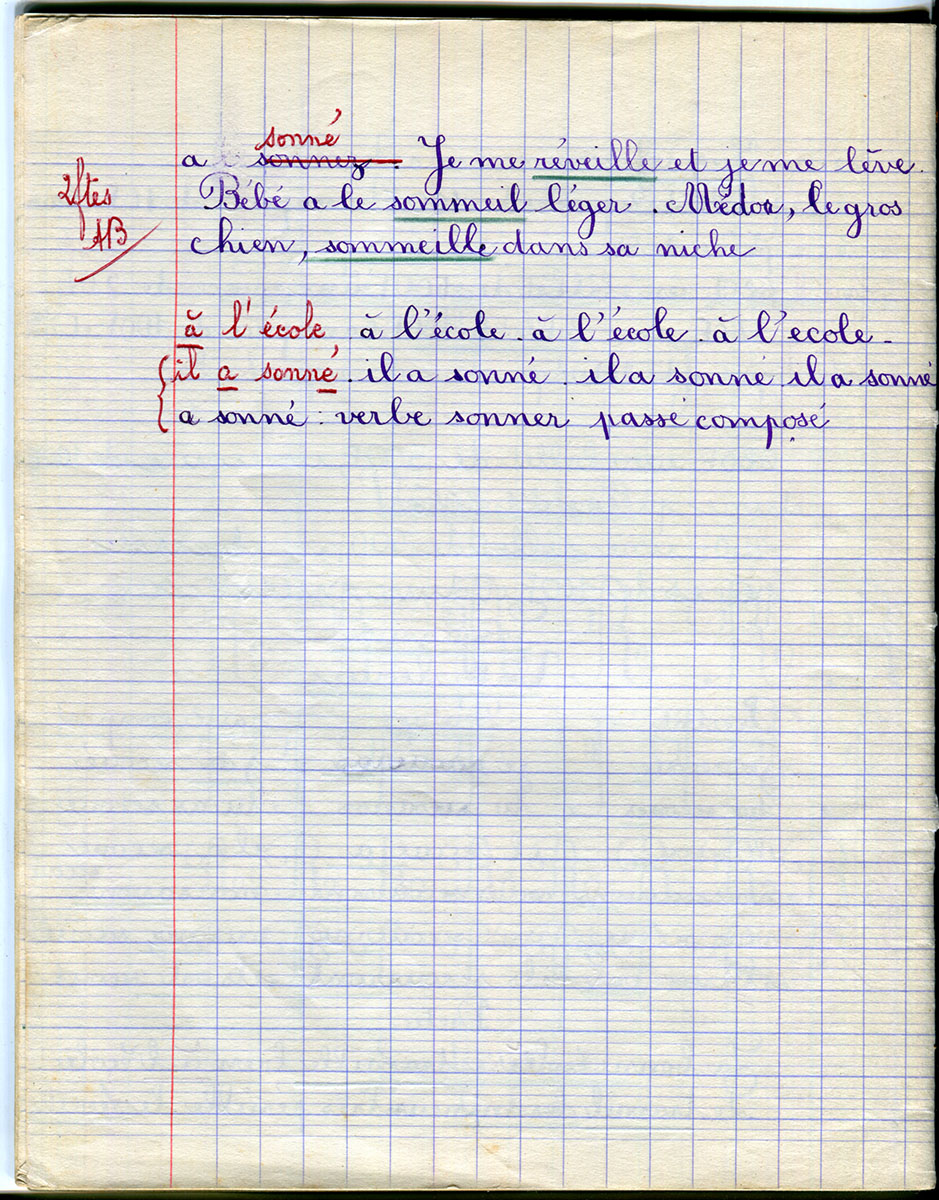 sonné
a sonnez Je me réveille et je me lève.
2 ftes
AB
Bébé a le sommeil léger. Médor, le gros
chien, sommeille dans sa niche
à l'école, à l'école. à l'école. à l'ecole.
il a sonné. il a sonné. il a sonné il a sonné
a sonné : verbe sonner passé composé